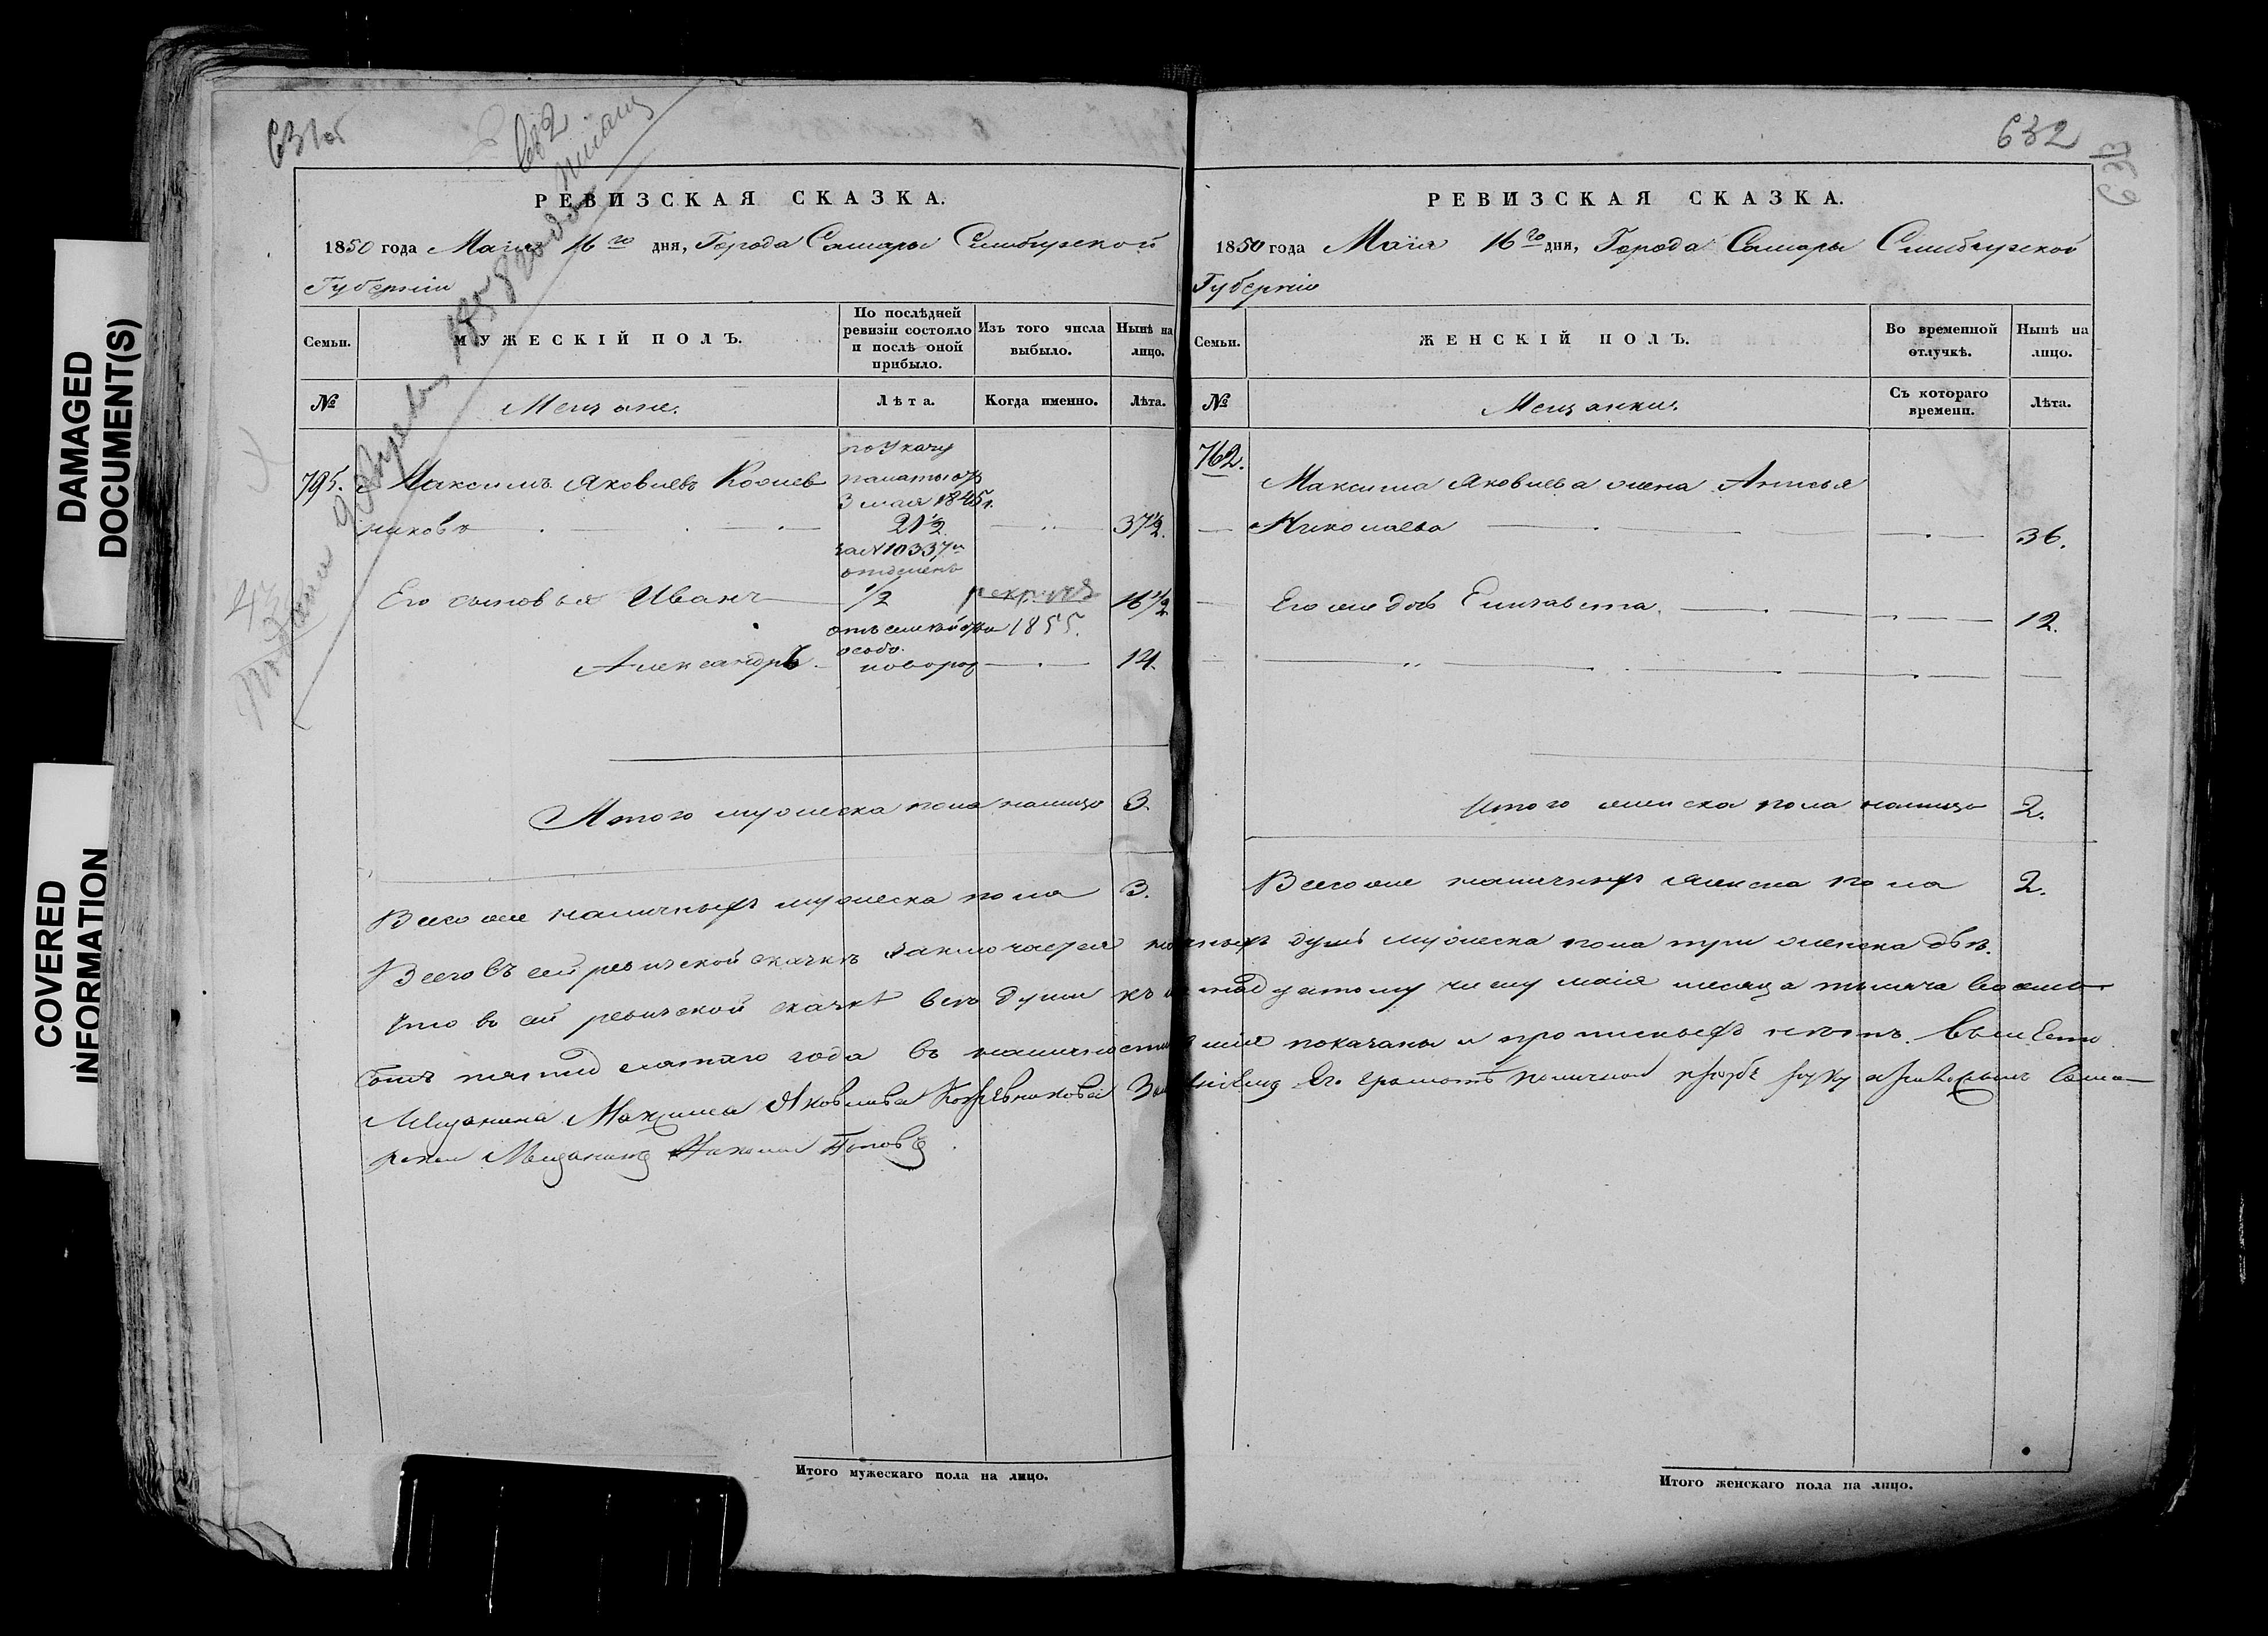 DAMAGED
DOCUMENT(S)
COVERED
INFORMATION
631об
632
РЕВИЗСКАЯ СКАЗКА.
1850 года Маія 16го дня, Города Самары Симбирской
Губерніи
Семьи.
МУЖЕСКІЙ ПОЛЪ.
По послѣдней
ревизіи состояло
и послѣ оной
прибыло.
Изъ того числа
выбыло.
Нынѣ на
лицо.
№
Мещане.
Лѣта.
Когда именно.
Лѣта.
1858 года
по Указу
палаты отъ
3 мая 1845 г.
795.
Максимъ Яковлевъ Кожев
никовъ
21½
37½.
за № 10337м
отделенъ
Его сыновья Иванъ
½
рекрутъ
16½
отъ семейства
1855.
особо.
Александръ
новорож
14.
Итого мужеска пола налицо 3.
Всего же наличныхъ мужеска пола 3.
632
633
РЕВИЗСКАЯ СКАЗКА.
1850 года Маія 16го дня, Города Самары Симбирской
Губерніи
Семьи.
ЖЕНСКІЙ ПОЛЪ.
Во временной
отлучкѣ.
Нынѣ на
лицо.
№
Мещанки.
Съ котораго
времени.
Лѣта.
762.
Максима Яковлева жена Анисья
Николаева
36.
Его же дочь Елизавета
12.
Итого женска пола налицо 2.
Всего же наличныхъ женска пола 2.
Всего въ сей ревизской сказкѣ заключается наличныхъ душъ мужеска пола три женска двѣ.
Что въ сей ревизской сказкѣ всѣ души къ шестнадцатому числу маія месяца тысяча восемь
сотъ пятидесятаго года въ наличности показаны и прописныхъ нетъ. Въ мѣсто
Мещанина Максима Яковлева Кожевникова Его грамотѣ прозбѣ руку приложилъ Сама
рской Мещанинъ Николай Поповъ
Итого мужескаго пола на лицо.
Итого женскаго пола на лицо.